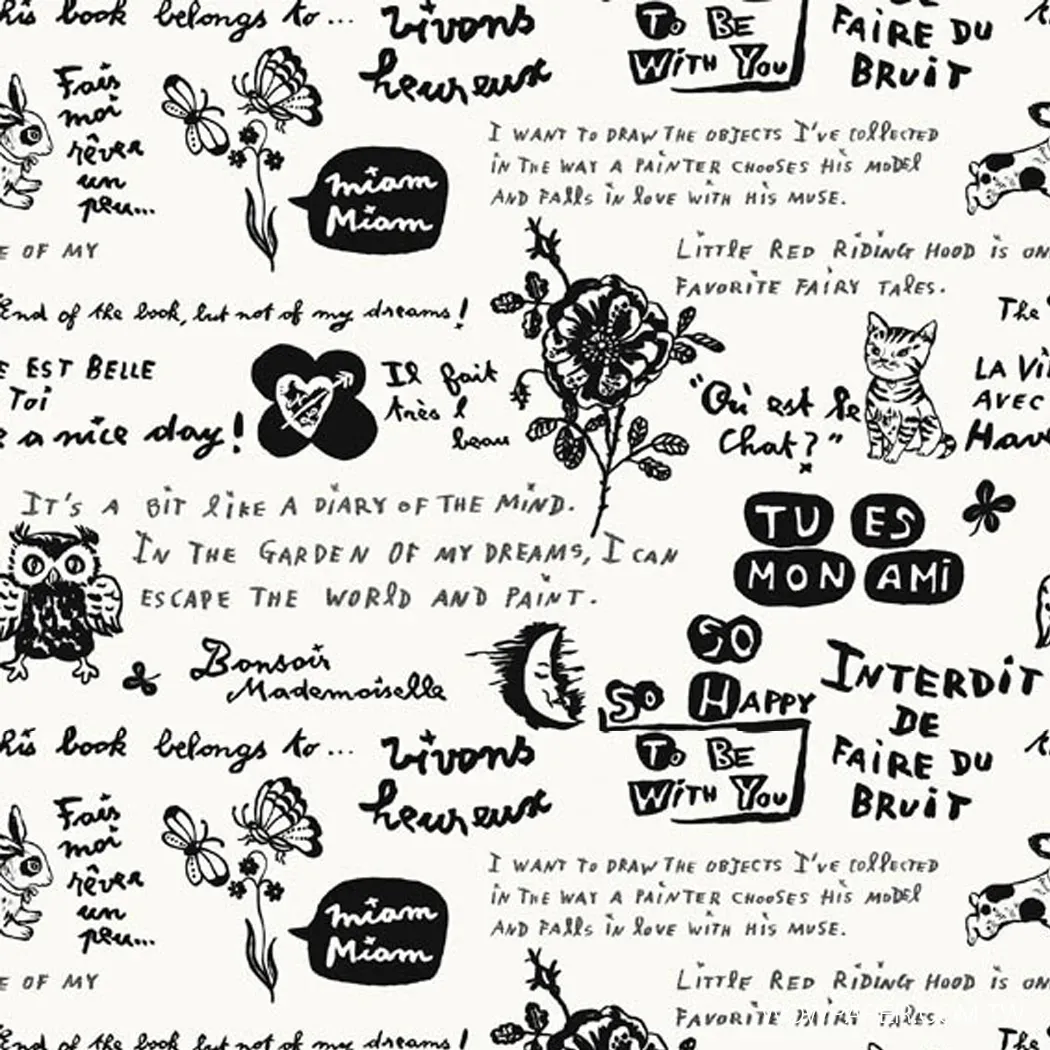 his book belongs to...
vivons
heureux
To Be
With You
FAIRE DU
BRUIT
Fais
moi
rêver
un
peu...
miam
Miam
I WANT TO DRAW THE OBJECTS I'VE COLLECTED
IN THE WAY A PAINTER CHOOSES HIS MODEL
AND FALLS IN LOVE WITH HIS MUSE.
E OF MY
LITTLE RED RIDING HOOD IS ON
FAVORITE FAIRY TALES.
End of the book, but not of my dreams!
The
E EST BELLE
Toi
e a nice day!
Il fait
très
beau
"Où est le
Chat?"
LA Vi
AVEC
Hav
IT'S A BIT LIKE A DIARY OF THE MIND.
IN THE GARDEN OF MY DREAMS, I CAN
ESCAPE THE WORLD AND PAINT.
TU ES
MON AMI
Bonsoir
Mademoiselle
SO
SO HAPPY
To Be
With You
INTERDIT
DE
FAIRE DU
BRUIT
his book belongs to...
vivons
heureux
Fais
moi
rêver
un
peu...
miam
Miam
I WANT TO DRAW THE OBJECTS I'VE COLLECTED
IN THE WAY A PAINTER CHOOSES HIS MODEL
AND FALLS IN LOVE WITH HIS MUSE.
E OF MY
LITTLE RED RIDING HOOD IS ON
FAVORITE FAIRY TALES.
End of the book, but not of my dreams!
The